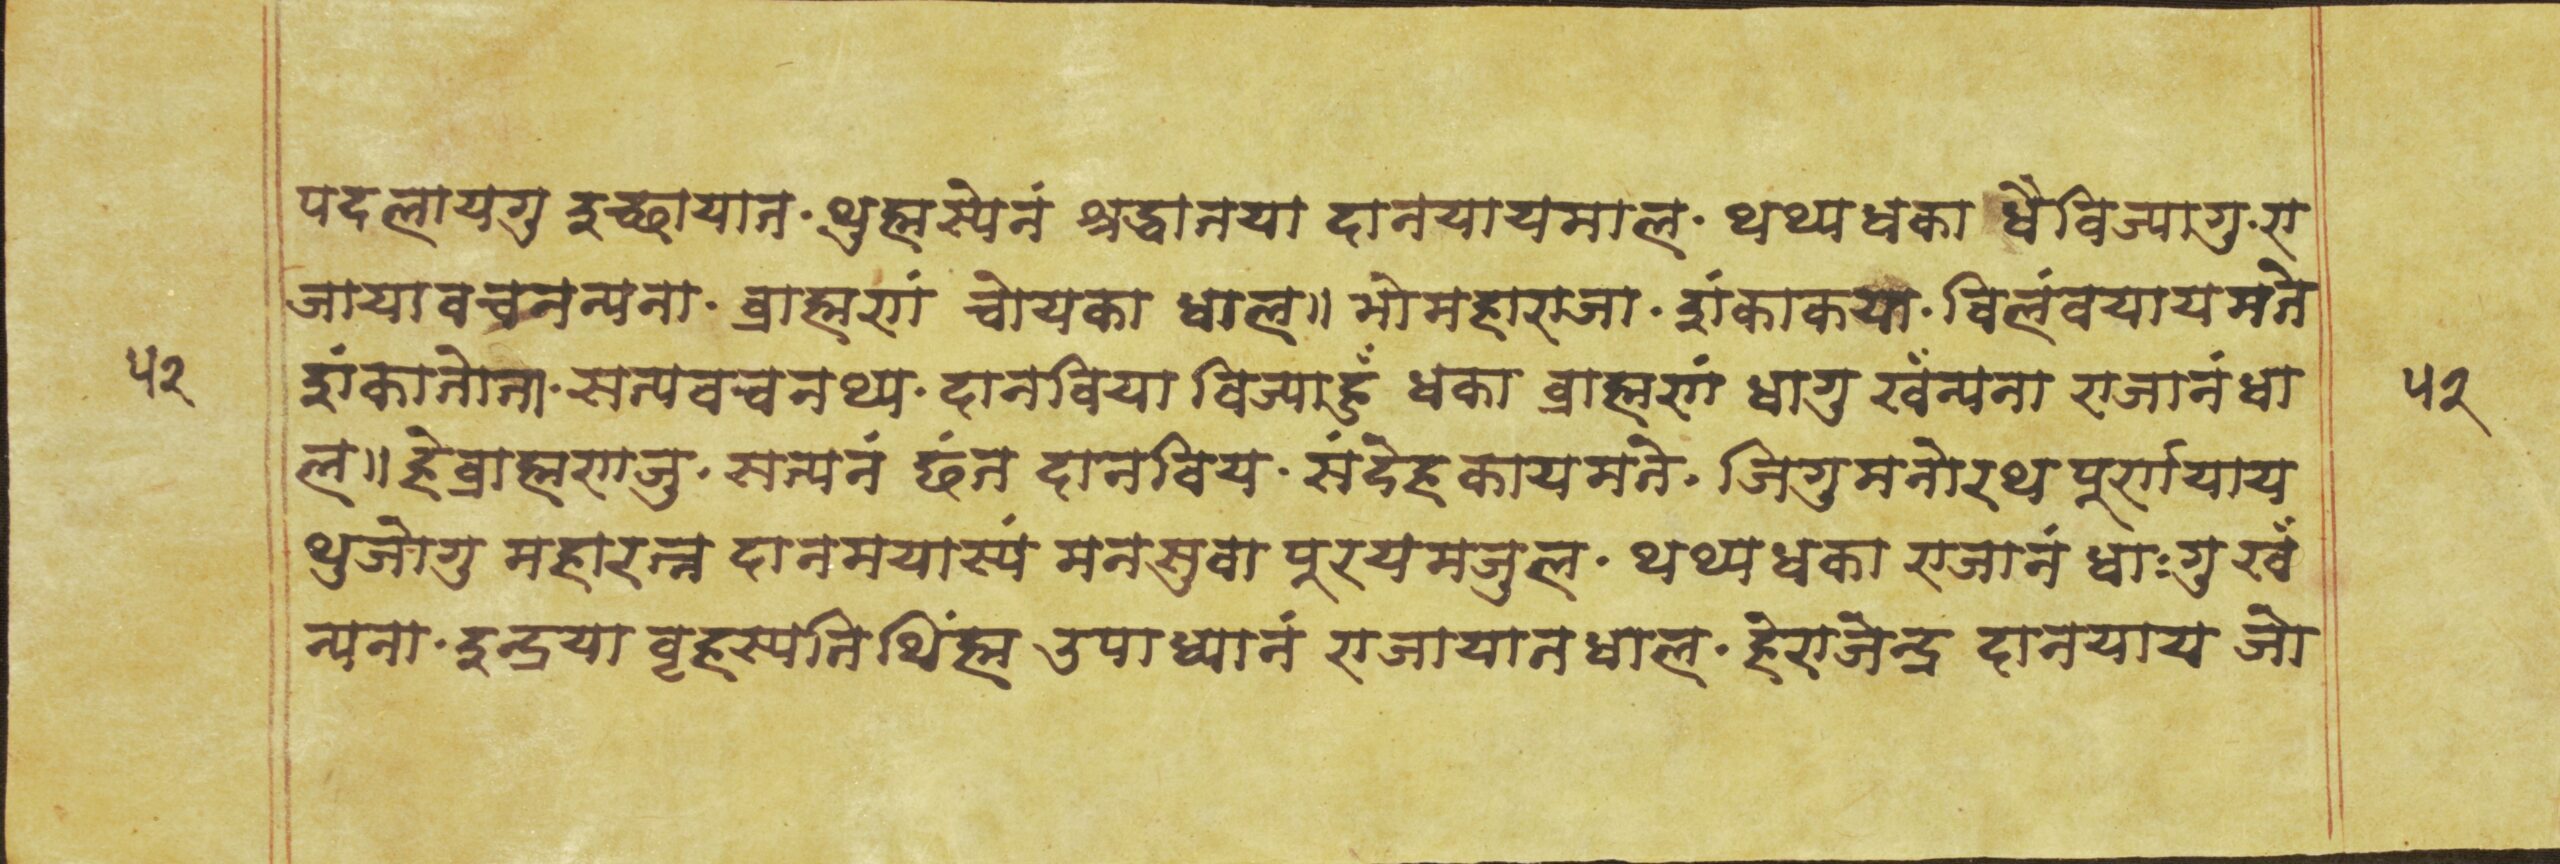 पदलायगु इच्छायात. थुह्मस्येनं श्रद्धानया दानयायमाल. थथ्यधका धैविज्यागु. रा
जायावचनन्यना. ब्राह्मणं चोयका धाल॥ भोमहाराजा. शंकाकया. विलंवयायमते
शंकातोता. सत्यवचनथ्य. दानविया विज्याहुँ धका ब्राह्मणं धागु खँन्यना राजानं धा
ल॥ हेब्राह्मणजु. सत्यनं छंत दानविय. संदेहकायमते. जिगुमनोरथ पूर्णयाय
थुजोगु महारत्न दानमयास्यं मनसुवा पूरयमजुल. थथ्यधका राजानं धाःगु खँ
न्यना. इन्द्रया वृहस्पतिथिंह्म उपाध्यानं राजायातधाल. हेराजेन्द्र दानयाय जो
५२
५२